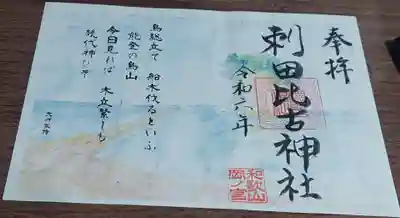 奉拝
刺田比古神社
令和六年
鳥総立て 船木伐るといふ
能登の島山
今日見れば 木立繁しも
幾代神びそ
大伴家持
和歌山
岡ノ宮